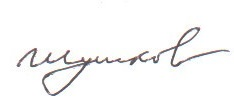 Шушков